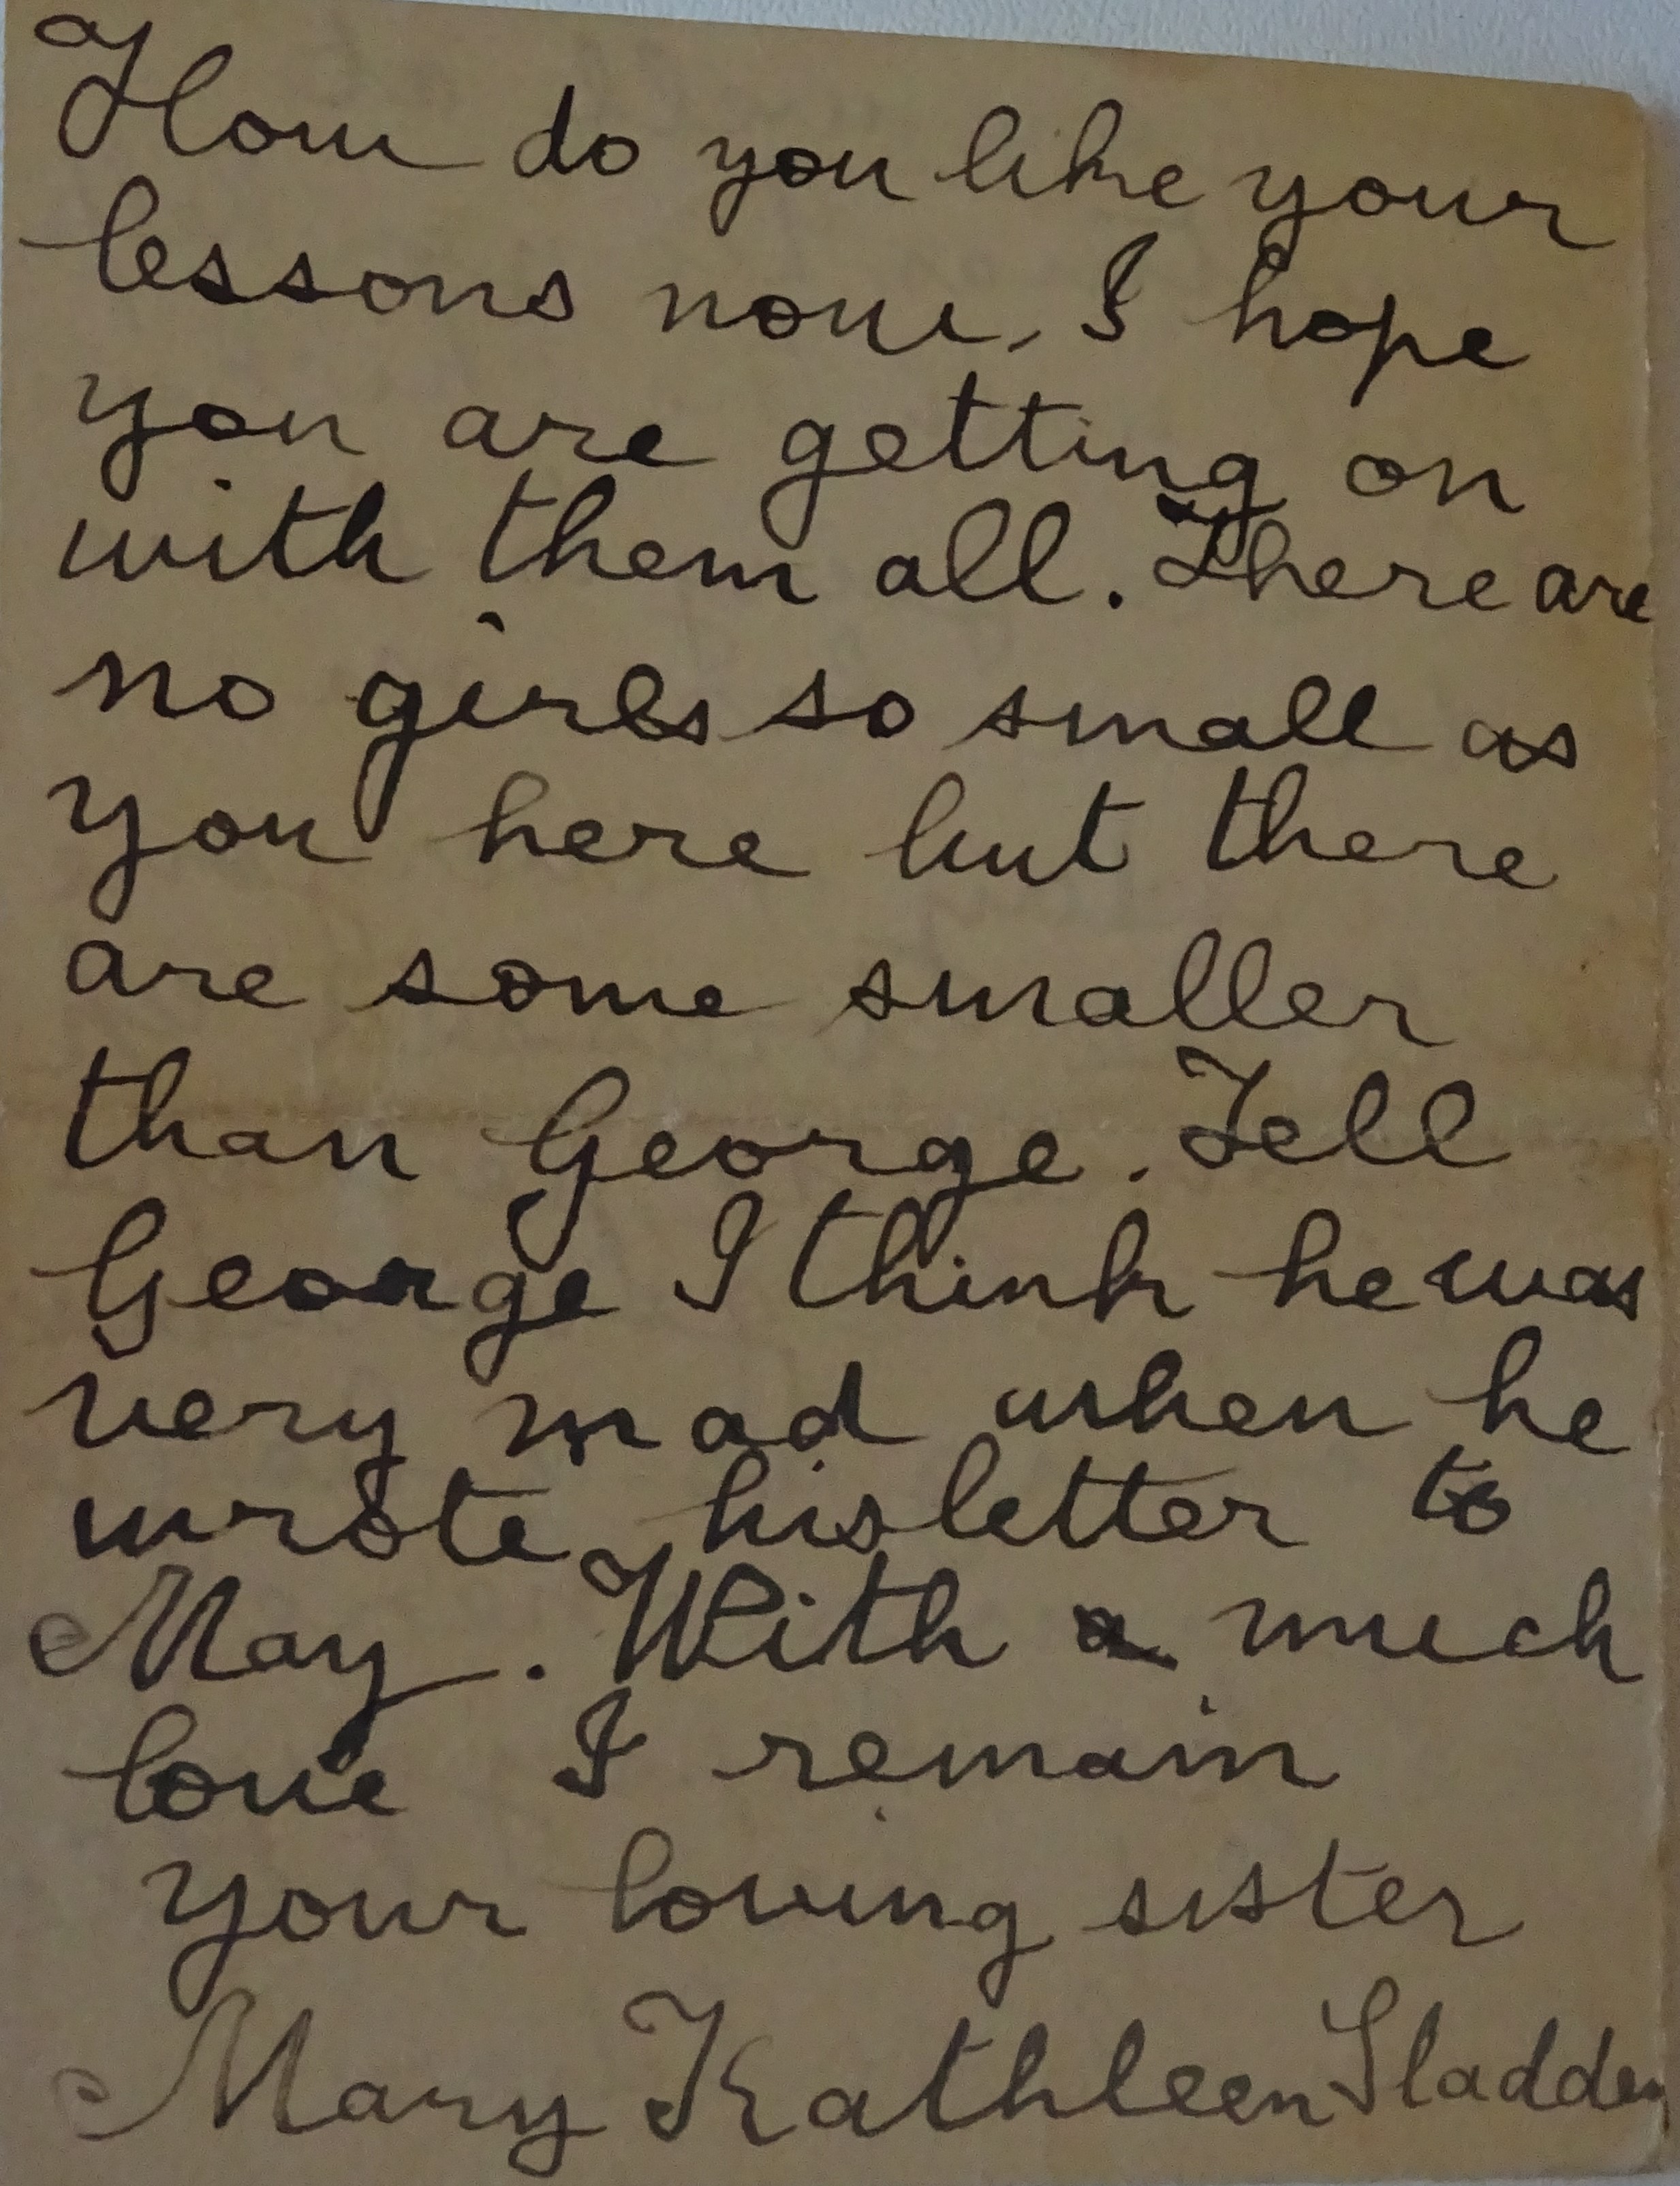 How do you like your
lessons now. I hope
you are getting on
with them all. There are
no girls so small as
you here but there
are some smaller
than George. Tell
George I think he was
very mad when he
wrote his letter to
May. With a much
love I remain
your loving sister
Mary Kathleen Sladden